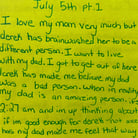 July 5th pt.1
I love my mom very much but
derek has brainwashed her to be a
different person. I want to live
with my dad. I got to get out of here
derek has made me believe my dad
was a bad person. When in reality
my dad is an amazing person.
2:27 am and im up thinking about
if im good enough for derek not
has my dad made me feel that